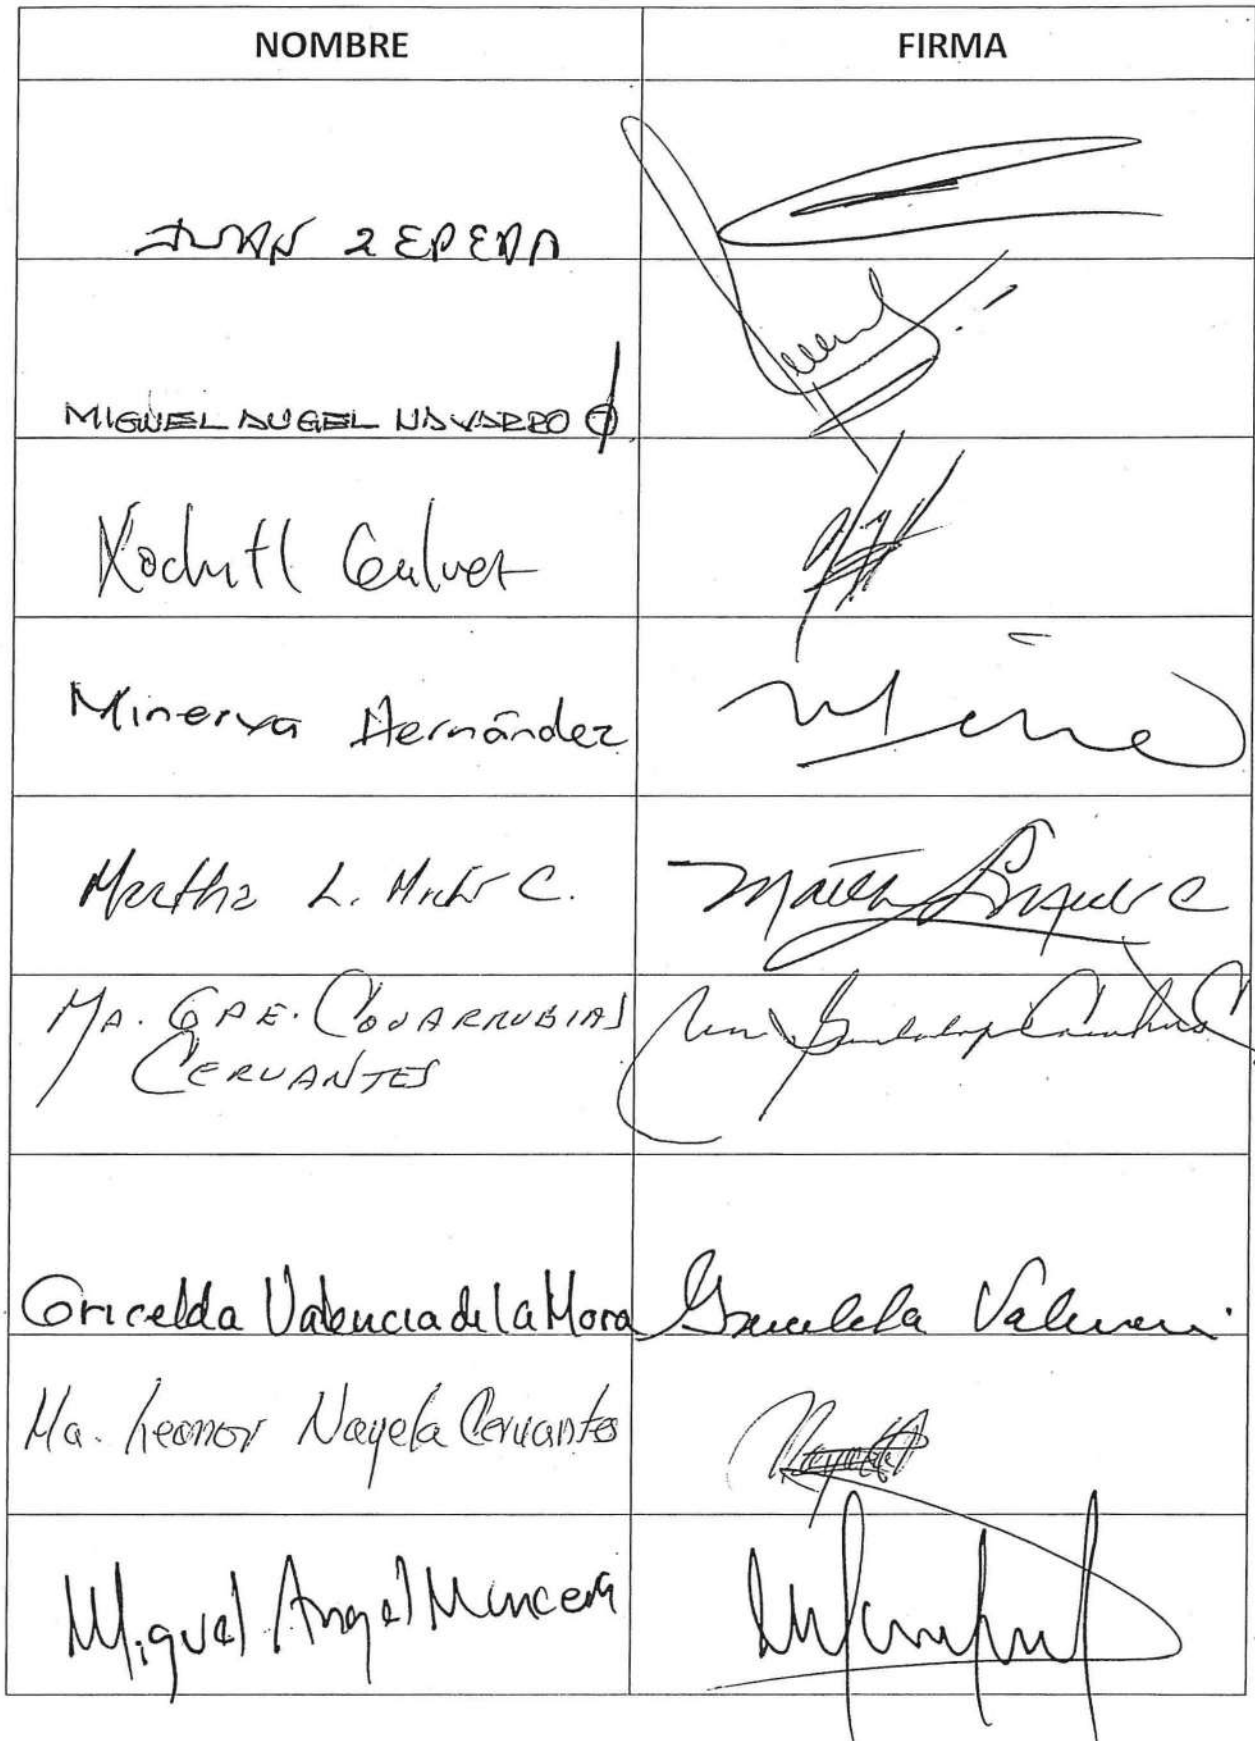 NOMBRE FIRMA
JUAN ZEPEDA
MIGUEL ANGEL NAVARRO
Xochitl Galvez
Minerva Hernández
Martha L. Micher C.
MA. GPE. COVARRUBIAS
CERVANTES
Gricelda Valencia de la Mora Griselda Valencia
Ma. Leonor Noyola Cervantes
Miguel Angel Mancera